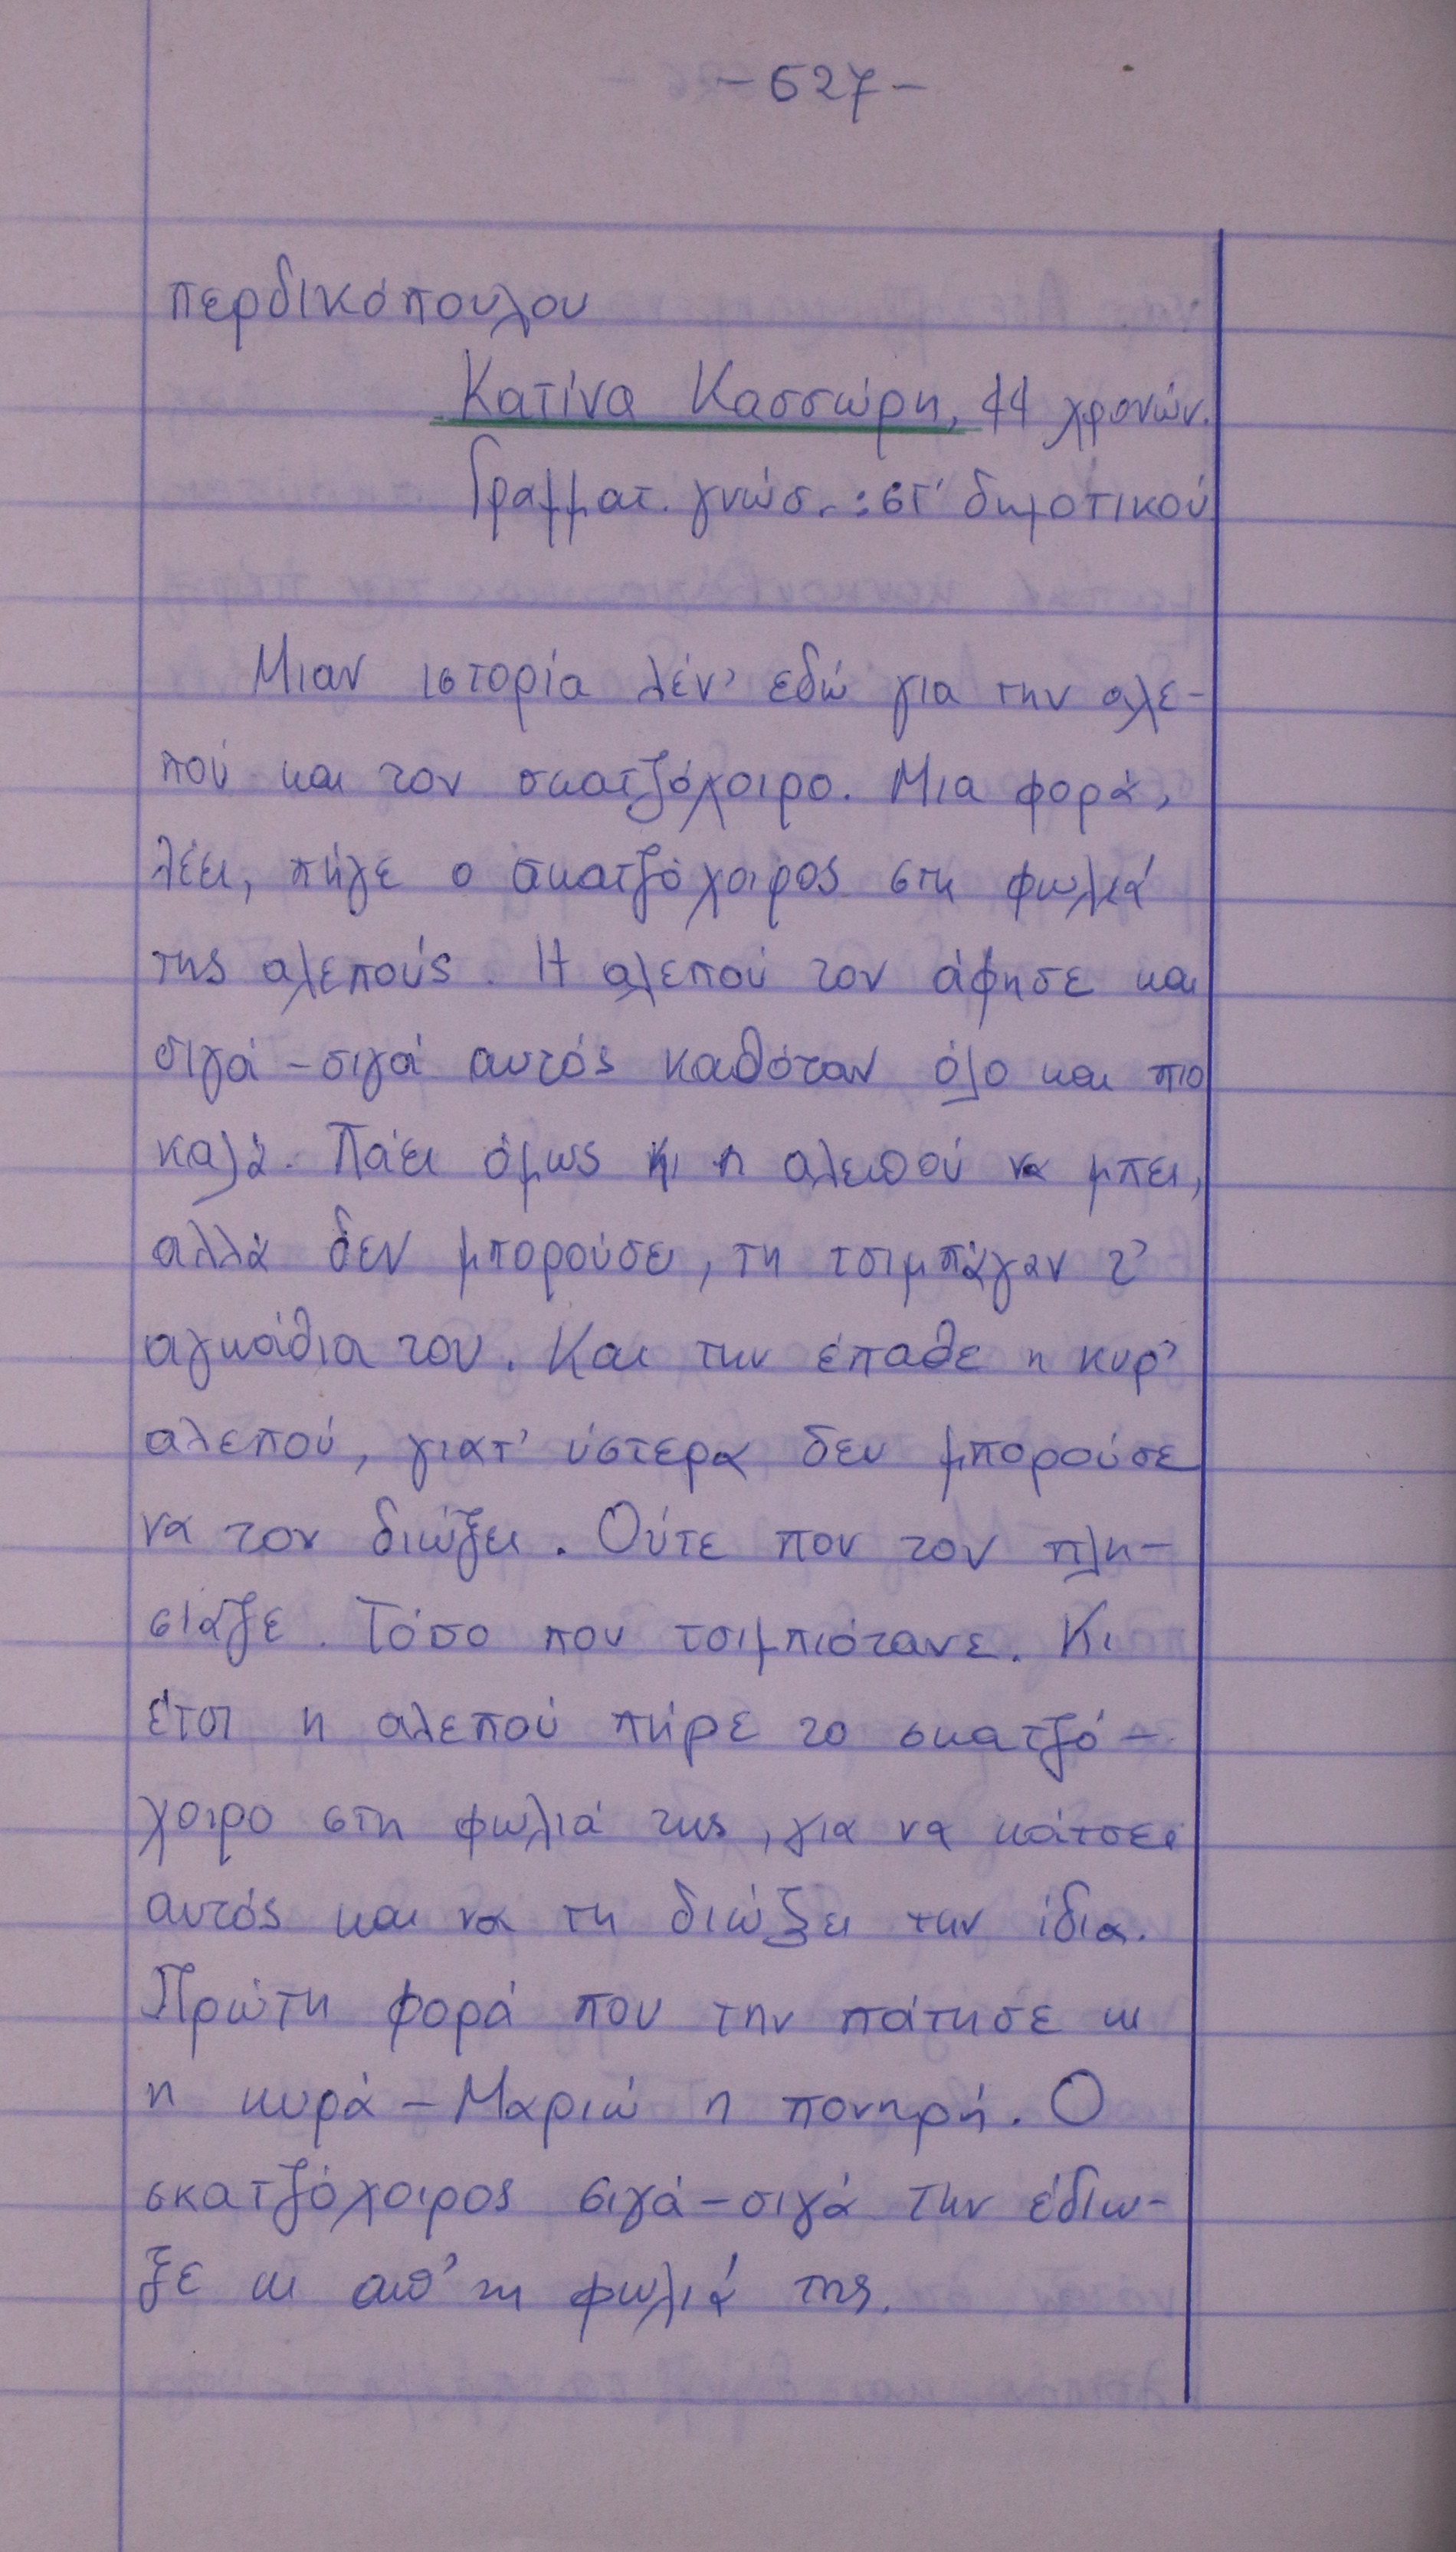 - 627 -
περδικόπουλου
Κατίνα Κασσώρη, 44 χρονών.
Γραμματ. γνώσ. : στ' δημοτικού
Μιαν ιστορία λέν' εδώ για την αλε-
πού και τον σκατζόχοιρο. Μια φορά,
λέει, πήγε ο σκατζόχοιρος στη φωλιά
της αλεπούς. Η αλεπού τον άφησε και
σιγά-σιγά αυτός καθόταν όλο και πιο
καλά. Πάει όμως κι η αλεπού να μπει,
αλλά δεν μπορούσε, τη τσιμπάγαν τ'
αγκάθια του. Και την έπαθε η κυρ'
αλεπού, γιατ' ύστερα δεν μπορούσε
να τον διώξει. Ούτε που τον πλη-
σίαζε. Τόσο που τσιμπιότανε. Κι
έτσι η αλεπού πήρε το σκατζό-
χοιρο στη φωλιά της, για να κάτσει
αυτός και να τη διώξει την ίδια.
Πρώτη φορά που την πάτησε κι
η κυρά-Μαριώ η πονηρή. Ο
σκατζόχοιρος σιγά-σιγά την έδιω-
ξε κι απ' τη φωλιά της.